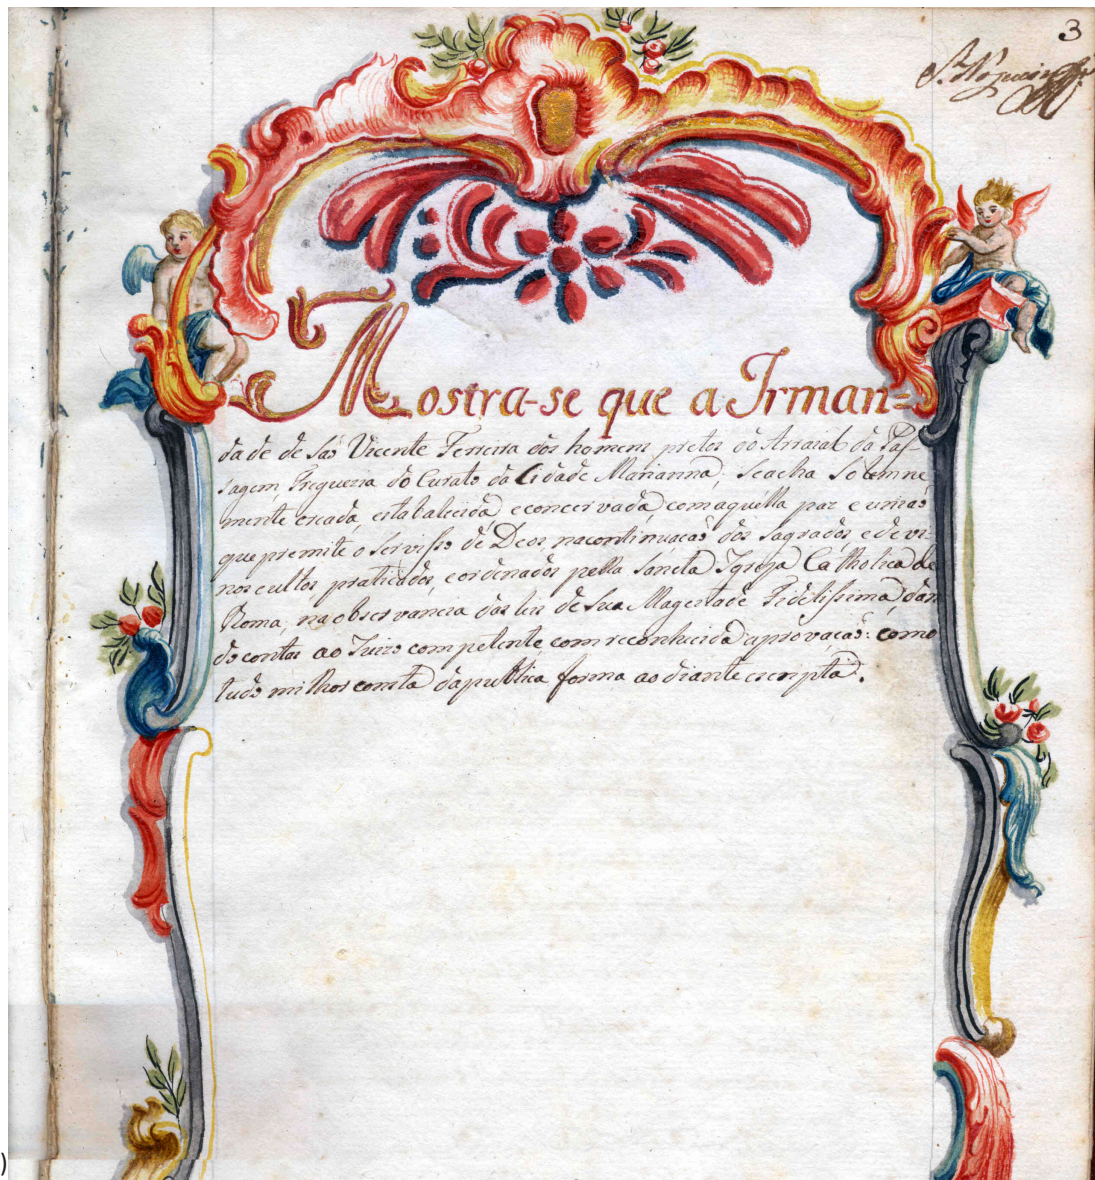 3
Mostra-se que a Irman=
dade de São Vicente Ferreira dos homens pretos do Arraial da Pas-
sagem, Freguezia do Curato da Cidade Marianna, seacha solemne
mente creada, estabalecida, econcervada, comaquella paz e uniaõ
que premite o Servisso de Deos, nacontinuaçaõ dos Sagrados edevi-
nos cultos, praticados, eordenados pella Sancta Igreja Catholica de
Roma, na observancia das leis de Sua Magestade Fidelissima, dan
do contas ao Juizo competente, com reconhecida aprovaçaõ: como
tudo milhor consta da publica forma ao diante escripta.
)